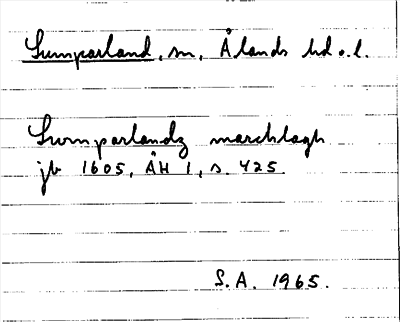 Sumparland, sn, Ålands hd o.l.
Swmparlandz marchlagh
jb 1605, ÅH 1, s. 425
S.A. 1965.